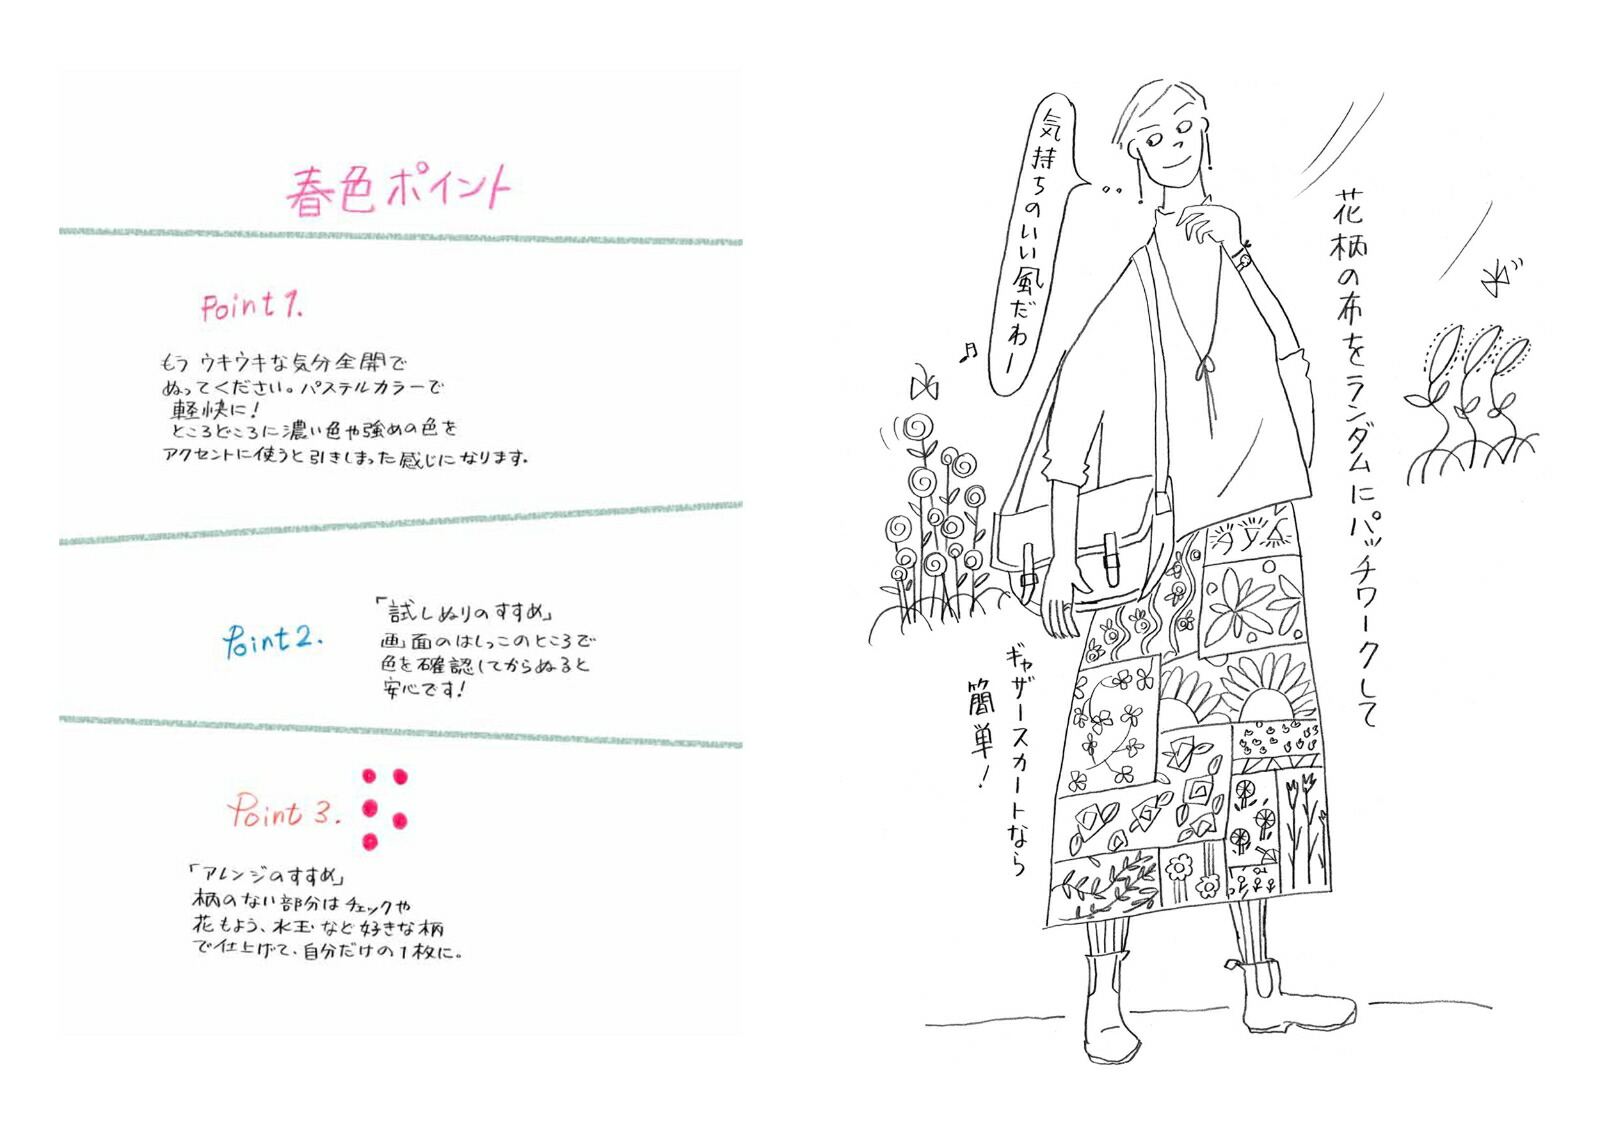 春色ポイント
Point 1.
もう ウキウキな気分全開で
ぬってください。パステルカラーで
軽快に!
ところどころに濃い色や強めの色を
アクセントに使うと引きしまった感じになります。
Point 2.
「試しぬりのすすめ」
画面のはしっこのところで
色を確認してからぬると
安心です!
Point 3.
「アレンジのすすめ」
柄のない部分はチェックや
花もよう、水玉など好きな柄
で仕上げて、自分だけの1枚に。
花柄の布をランダムにパッチワークして
気持ちのいい風だわー
ギャザースカートなら
簡単!